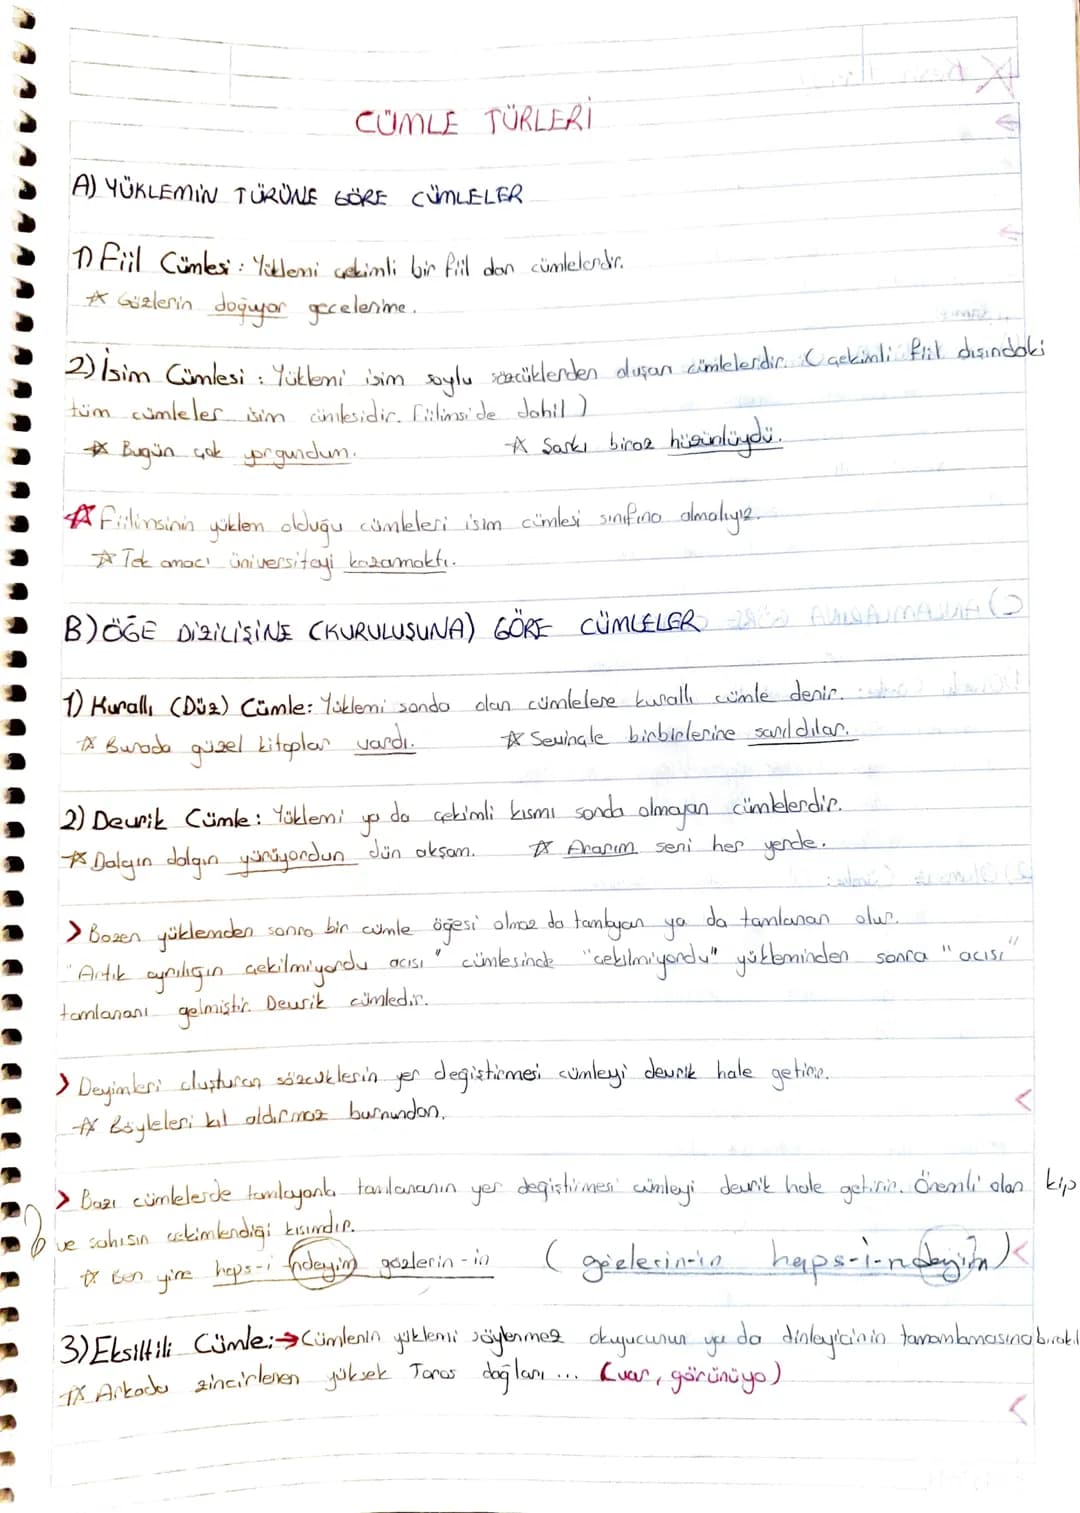 CÜMLE TÜRLERİ
A) YÜKLEMİN TÜRÜNE GÖRE CÜMLELER
1) Fiil Cümlesi : Yüklemi çekimli bir fiil olan cümlelerdir.
☆ Gözlerin doğuyor gecelerime.
2) İsim Cümlesi : Yüklemi isim soylu sözcüklerden oluşan cümlelerdir. (çekimli fiil dışındaki
tüm cümleler isim cümlesidir. Fiilimsi de dahil)
☆ Bugün çok yorgundum. ☆ Şarkı biraz hüzünlüydü.
☆ Fiilimsinin yüklem olduğu cümleleri isim cümlesi sınıfına almalıyız.
☆ Tek amacı üniversiteyi kazanmaktı.
B) ÖĞE DİZİLİŞİNE (KURULUŞUNA) GÖRE CÜMLELER
1) Kurallı (Düz) Cümle: Yüklemi sonda olan cümlelere kurallı cümle denir.
☆ Burada güzel kitaplar vardı. ☆ Sevinçle birbirlerine sarıldılar.
2) Devrik Cümle: Yüklemi ya da çekimli kısmı sonda olmayan cümlelerdir.
☆ Dalgın dalgın yürüyordun dün akşam. ☆ Ararım seni her yerde.
> Bazen yüklemden sonra bir cümle öğesi olmaz da tamlayan ya da tamlanan olur.
"Artık ayrılığın çekilmiyordu acısı" cümlesinde "çekilmiyordu" yükleminden sonra "acısı"
tamlananı gelmiştir. Devrik cümledir.
> Deyimleri oluşturan sözcüklerin yer değiştirmesi cümleyi devrik hale getirir.
☆ Böyleleri kıl aldırmaz burnundan.
> Bazı cümlelerde tamlayanla tamlananın yer değiştirmesi cümleyi devrik hale getirir. Önemli olan kip
ve şahısın çekimlendiği kısımdır.
☆ Ben yine haps-i ndeyim gözlerin-in ( gözlerin-in haps-i-ndeyim )
3) Eksiltili Cümle: → Cümlenin yüklemi söylenmez okuyucunun ya da dinleyicinin tamamlamasına bırakıl
☆ Arkada zincirleren yüksek Toros dağları ... (var, görünüyo)